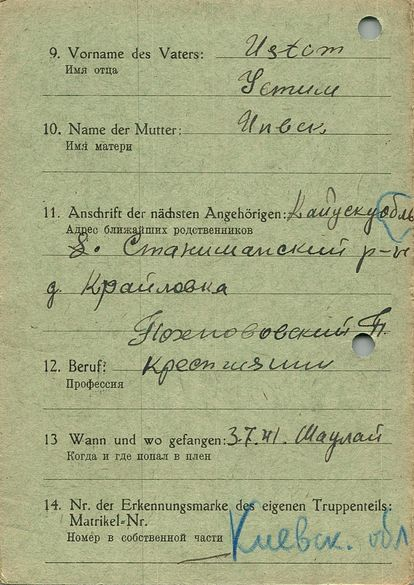 9. Vorname des Vaters: Ustom
Имя отца
Устим
10. Name der Mutter:
Имя матери
11. Anschrift der nächsten Angehörigen:
Адрес ближайших родственников
р-н
д. Крайловка
12. Beruf:
Профессия
13 Wann und wo gefangen: 3.7.41. Шаулай
Когда и где попал в плен
14. Nr. der Erkennungsmarke des eigenen Truppenteils:
Matrikel-Nr.
Номер в собственной части Киевск. обл